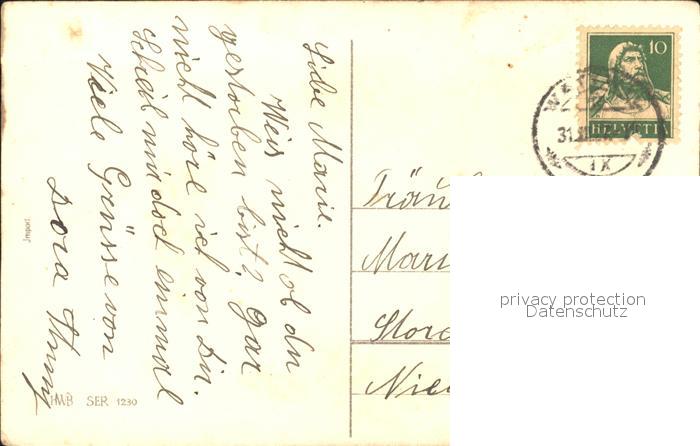 Liebe Marie.
Weis nicht ob du
gestorben bist? gar
nicht höre ich von Dir.
Schreib mir doch einmal
Viele Grüsse von
Dora
Import
HWB SER 1230
10
HELVETIA
31.XII
IX
Mari
Nie
privacy protection
Datenschutz